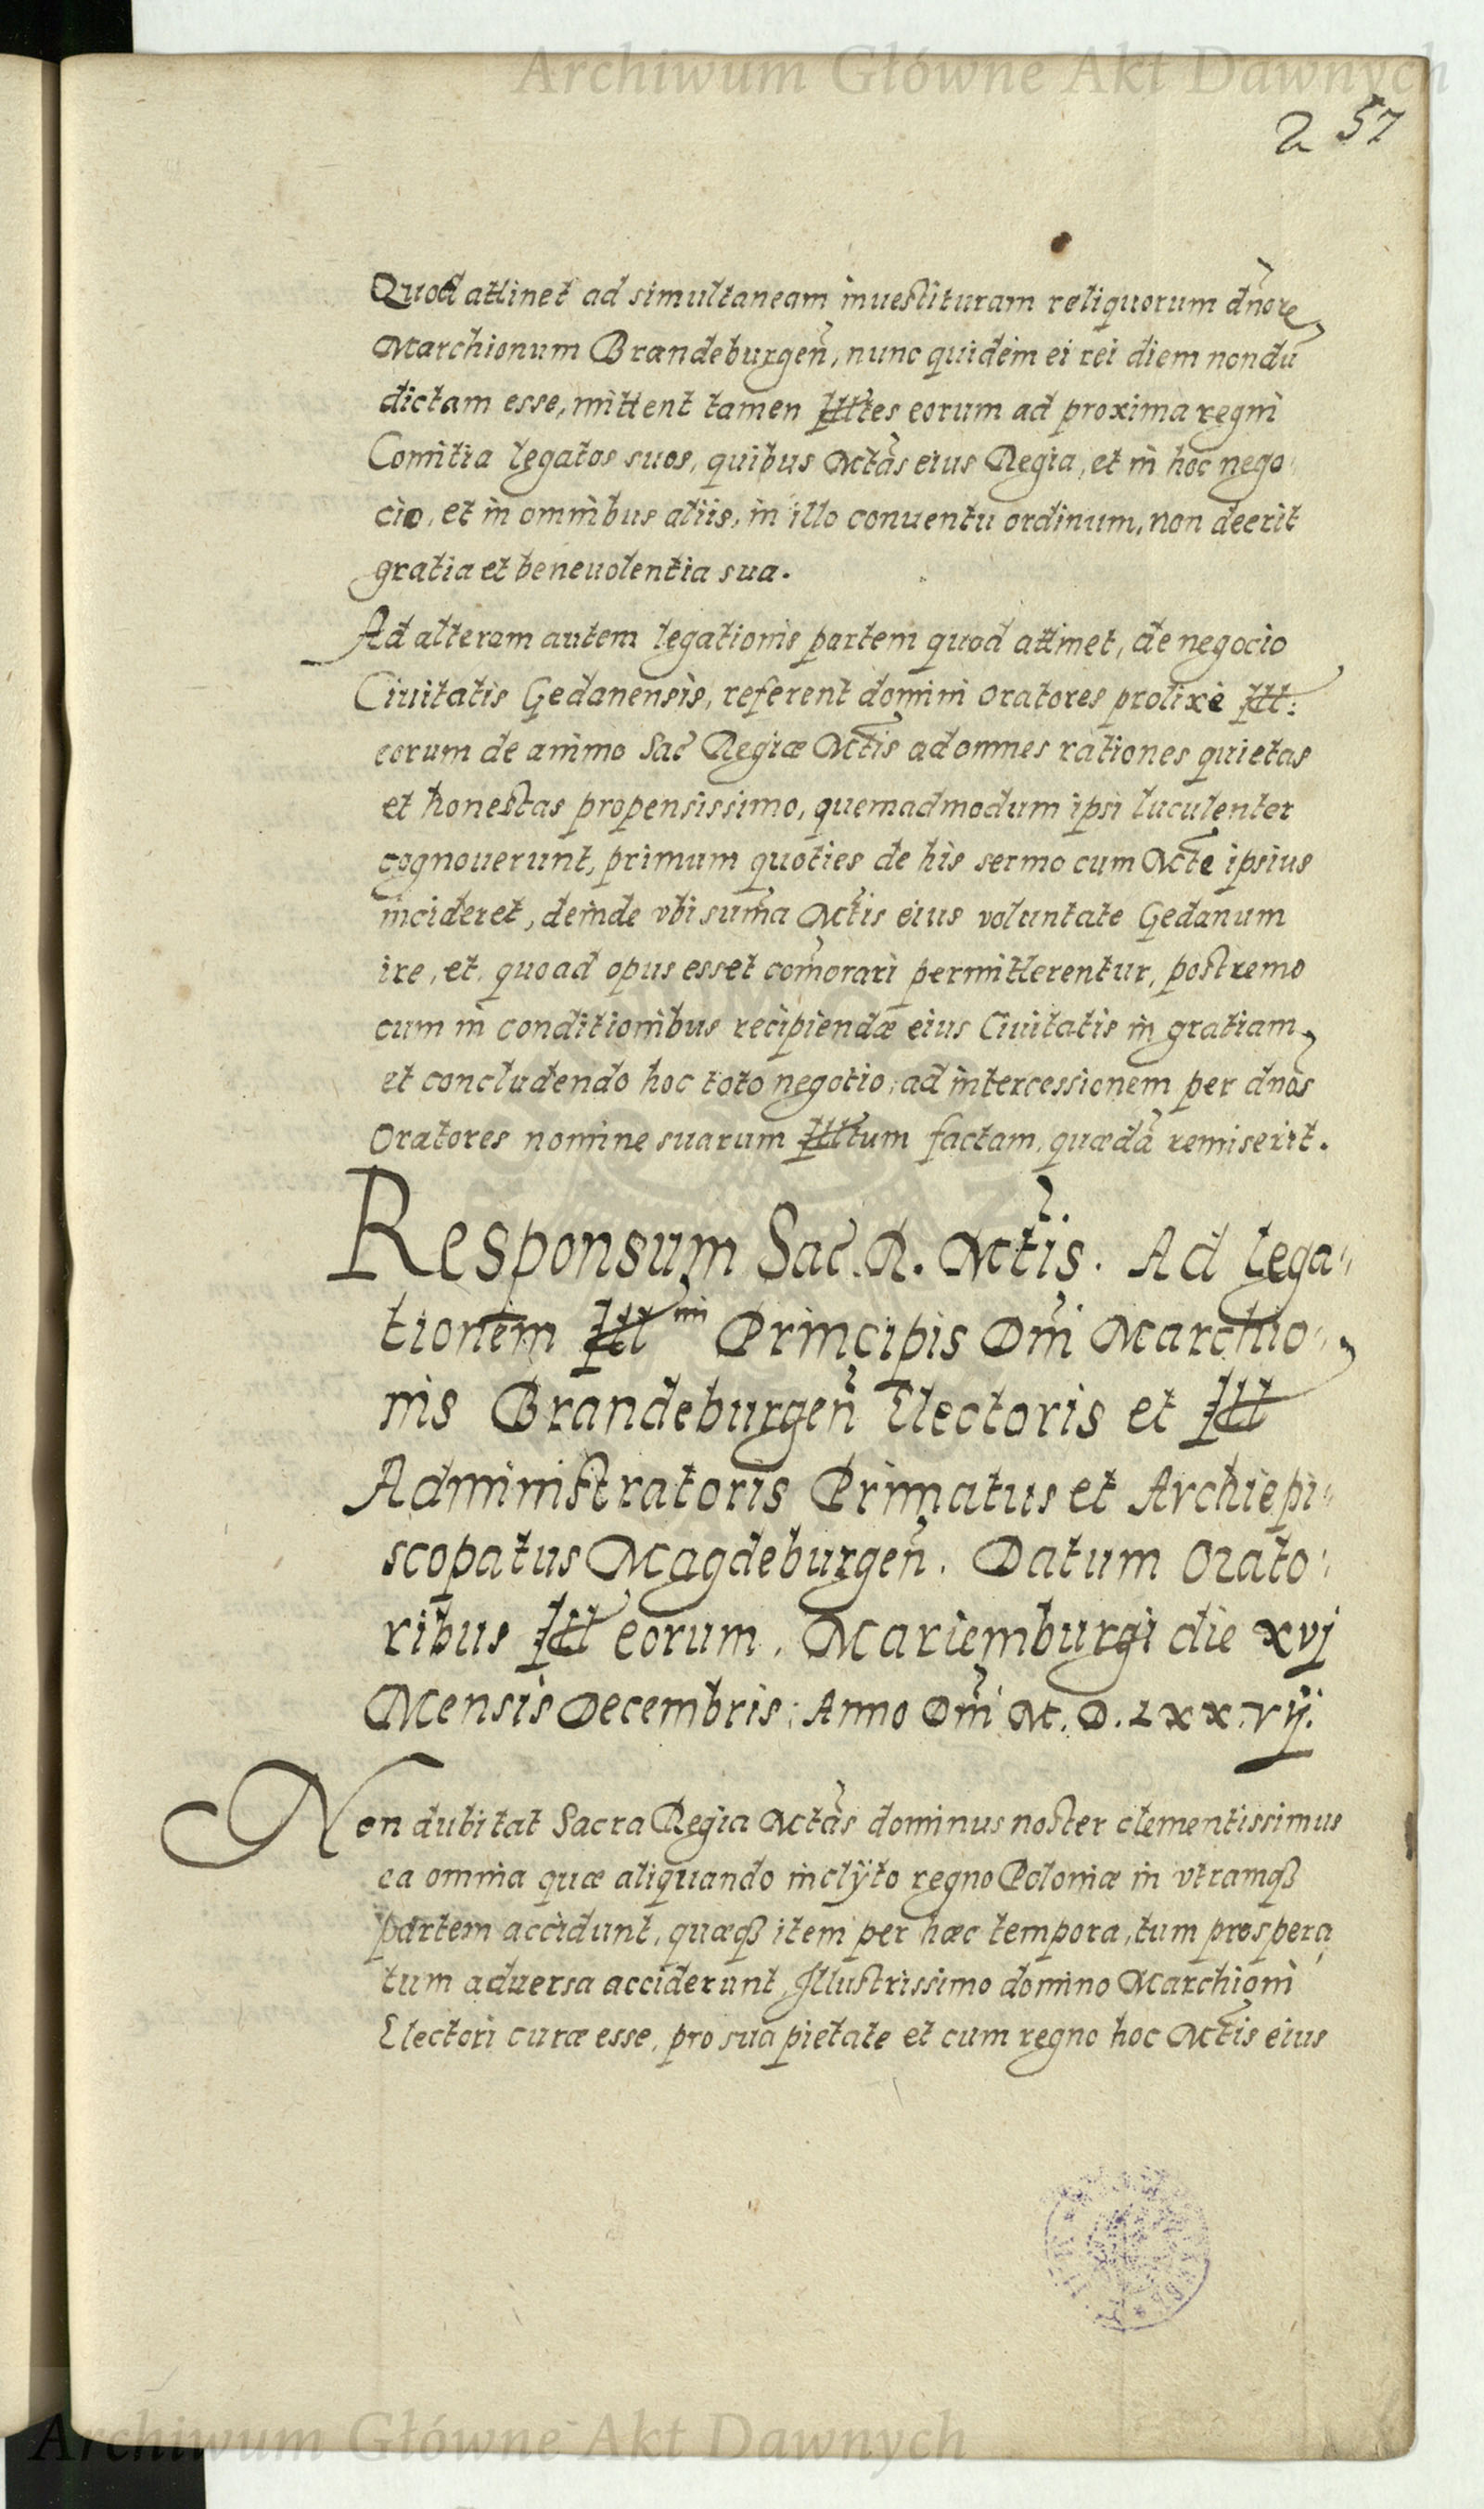 Archiwum Główne Akt Dawnych
2 57
Quod attinet ad simultaneam inuestituram reliquorum dn̄ore
Marchionum Brandeburgen̄, nunc quidem ei rei diem nondū
dictam esse, mittent tamen Illtes eorum ad proxima regni
Comitia legatos suos, quibus Mtās eius Regia, et in hoc nego
cio, et in omnibus aliis, in illo conuentu ordinum, non deerit
gratia et beneuolentia sua.
Ad alteram autem legationis partem quod attinet, de negocio
Ciuitatis Gedanensis, referent domini Oratores prolixè Ill:
eorum de animo Sac Regiæ Mtis ad omnes rationes quietas
et honestas propensissimo, quemadmodum ipsi luculenter
cognouerunt, primum quoties de his sermo cum Mte ipsius
incideret, deinde vbi sum̄a Mtis eius voluntate Gedanum
ire, et, quoad opus esset com̄orari permitterentur, postremo
cum in conditionibus recipiendæ eius Ciuitatis in gratiam,
et concludendo hoc toto negotio, ad intercessionem per dnōs
Oratores nomine suarum Illtum factam, quædā remiserit.
Responsum Sac. R. Mtis. Ad lega-
tionem Ill^mi Principis Dn̄i Marchio-
nis Brandeburgen̄ Electoris et Ill
Administratoris Primatus et Archiepi-
scopatus Magdeburgen̄. Datum Orato-
ribus Ill eorum. Mariemburgi die xvj
Mensis Decembris: Anno Dn̄i M. D. Lxx.vij.
Non dubitat Sacra Regia Mtās dominus noster clementissimus
ea omnia quæ aliquando inclÿto regno Poloniæ in vtramqß
partem accidunt, quæqß item per hæc tempora, tum prospera,
tum aduersa acciderunt, Illustrissimo domino Marchioni
Electori curæ esse, pro sua pietate et cum regno hoc Mtis eius
Archiwum Główne Akt Dawnych